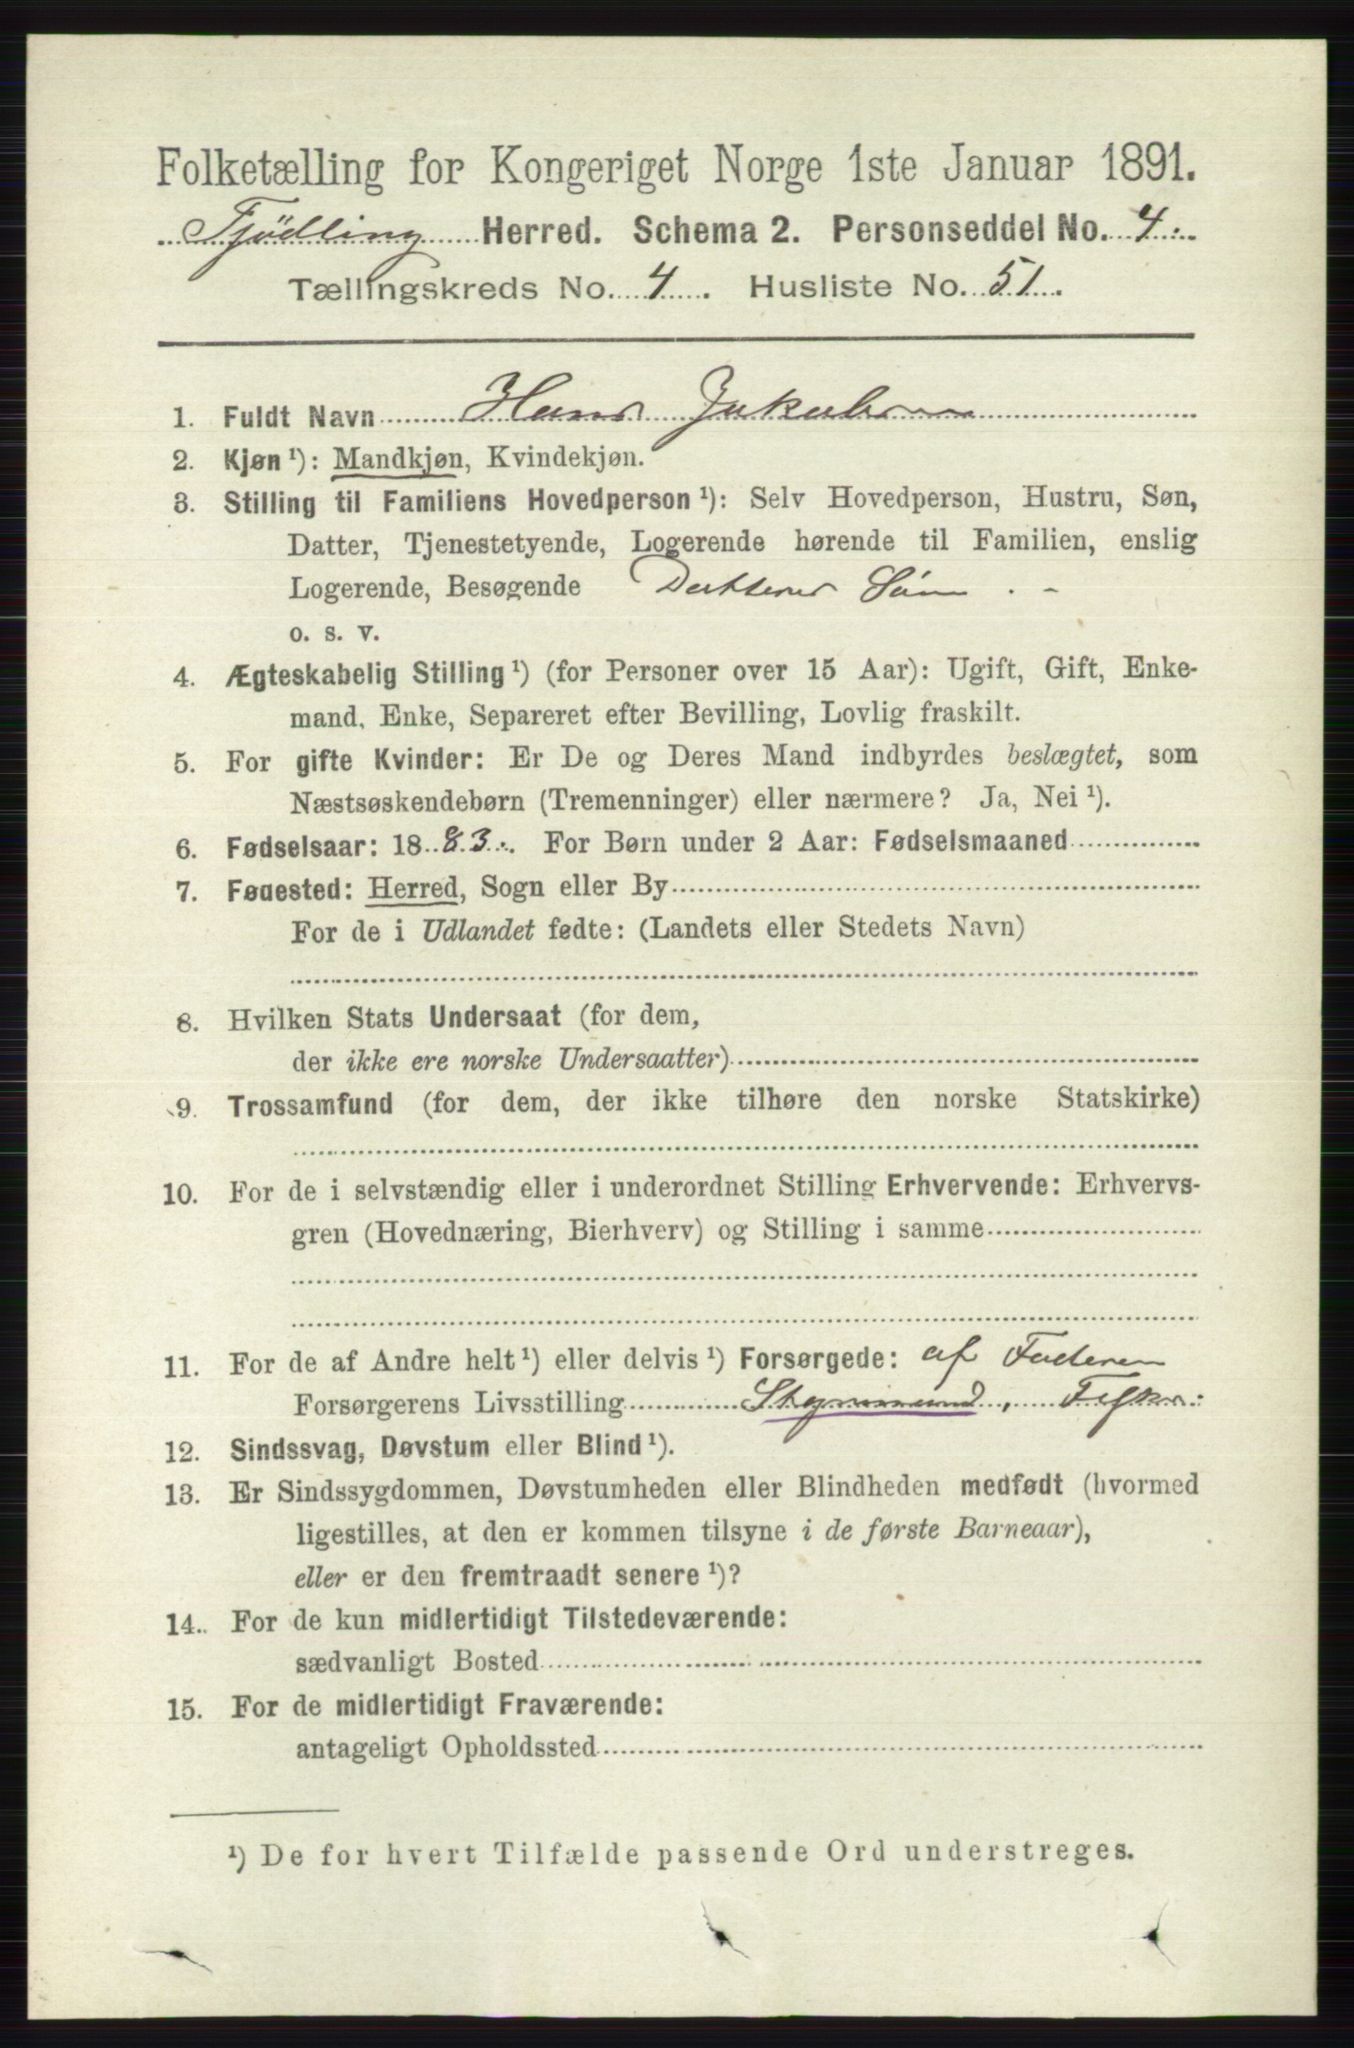 Folketælling for Kongeriget Norge 1ste Januar 1891.
Tjödling Herred. Schema 2. Personseddel No. 4.
Tællingskreds No. 4. Husliste No. 51.
1. Fuldt Navn Hans Jakobsen
2. Kjøn ¹): Mandkjøn, Kvindekjøn.
3. Stilling til Familiens Hovedperson ¹): Selv Hovedperson, Hustru, Søn,
Datter, Tjenestetyende, Logerende hørende til Familien, enslig
Logerende, Besøgende Datterens Søn . -
o. s. v.
4. Ægteskabelig Stilling ¹) (for Personer over 15 Aar): Ugift, Gift, Enke-
mand, Enke, Separeret efter Bevilling, Lovlig fraskilt.
5. For gifte Kvinder: Er De og Deres Mand indbyrdes beslægtet, som
Næstsøskendebørn (Tremenninger) eller nærmere? Ja, Nei ¹).
6. Fødselsaar: 1883. For Børn under 2 Aar: Fødselsmaaned
7. Føuested: Herred, Sogn eller By
For de i Udlandet fødte: (Landets eller Stedets Navn)
8. Hvilken Stats Undersaat (for dem,
der ikke ere norske Undersaatter)
9. Trossamfund (for dem, der ikke tilhøre den norske Statskirke)
10. For de i selvstændig eller i underordnet Stilling Erhvervende: Erhvervs-
gren (Hovednæring, Bierhverv) og Stilling i samme
11. For de af Andre helt ¹) eller delvis ¹) Forsørgede: af Faderen
Forsørgerens Livsstilling Styrmand,
12. Sindssvag, Døvstum eller Blind ¹).
13. Er Sindssygdommen, Døvstumheden eller Blindheden medfødt (hvormed
ligestilles, at den er kommen tilsyne i de første Barneaar),
eller er den fremtraadt senere ¹)?
14. For de kun midlertidigt Tilstedeværende:
sædvanligt Bosted
15. For de midlertidigt Fraværende:
antageligt Opholdssted
¹) De for hvert Tilfælde passende Ord understreges.